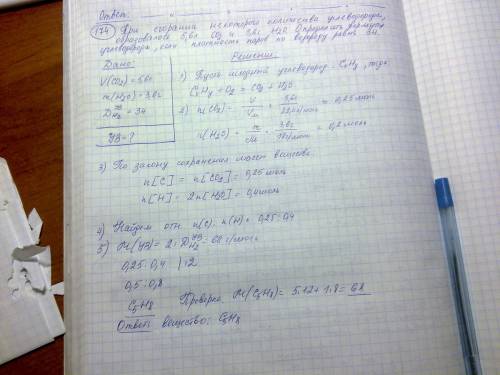 Ответ:
174 При сгорании некоторого количества углеводорода,
образовалось 5,6л CO₂ и 3,6г H₂O. Определить формулу
углеводорода, если плотность паров по водороду равна 34.
Дано:
V(CO₂) = 5,6л
m(H₂O) = 3,6г
D_H₂^УВ = 34
УВ = ?
Решение:
1) Пусть исходный углеводород - CₓHᵧ, тогда:
CₓHᵧ + O₂ = CO₂ + H₂O
2) n(CO₂) = V/Vₘ = 5,6л/22,4л/моль = 0,25 моль
n(H₂O) = m/M = 3,6г/18г/моль = 0,2 моль
3) По закону сохранения масс веществ:
n[C] = n[CO₂] = 0,25 моль
n[H] = 2n[H₂O] = 0,4 моль
4) Найдём отн. n(C) : n(H) = 0,25 : 0,4
5) M(УВ) = 2 · D_H₂^УВ = 68 г/моль
0,25 : 0,4 | · 2
0,5 : 0,8
C₅H₈ Проверка M(C₅H₈) = 5·12 + 1·8 = 68
Ответ: вещество: C₅H₈